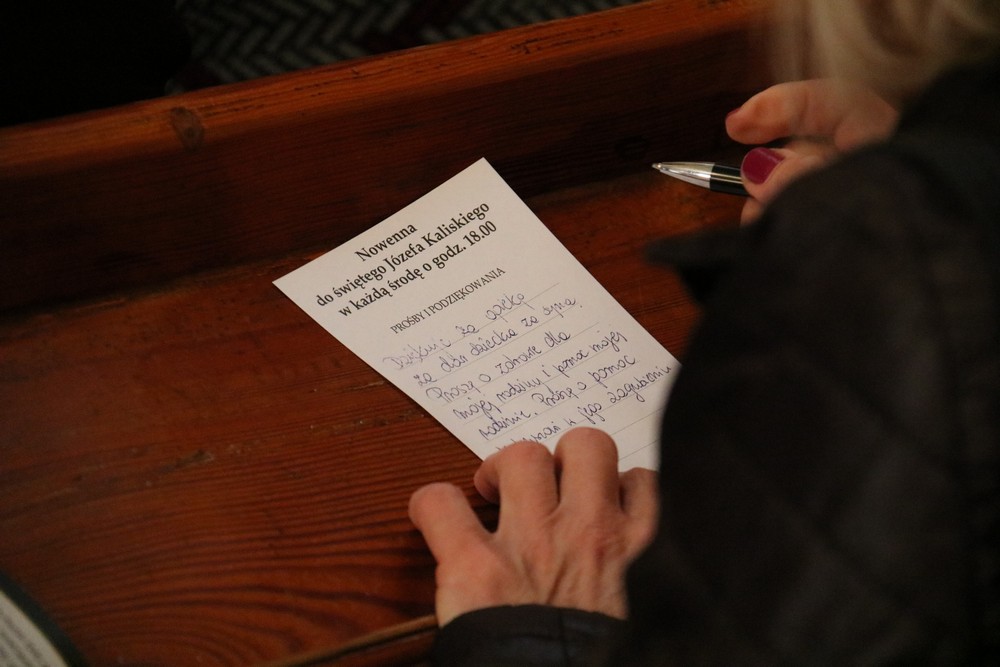 Nowenna
do świętego Józefa Kaliskiego
w każdą środę o godz. 18.00
PROŚBY I PODZIĘKOWANIA
Dziękuję za opiekę
za dar dziecka za syna.
Proszę o zdrowie dla
mojej rodziny i pomoc mojej
rodzinie. Proszę o pomoc
w jego zagubieniu